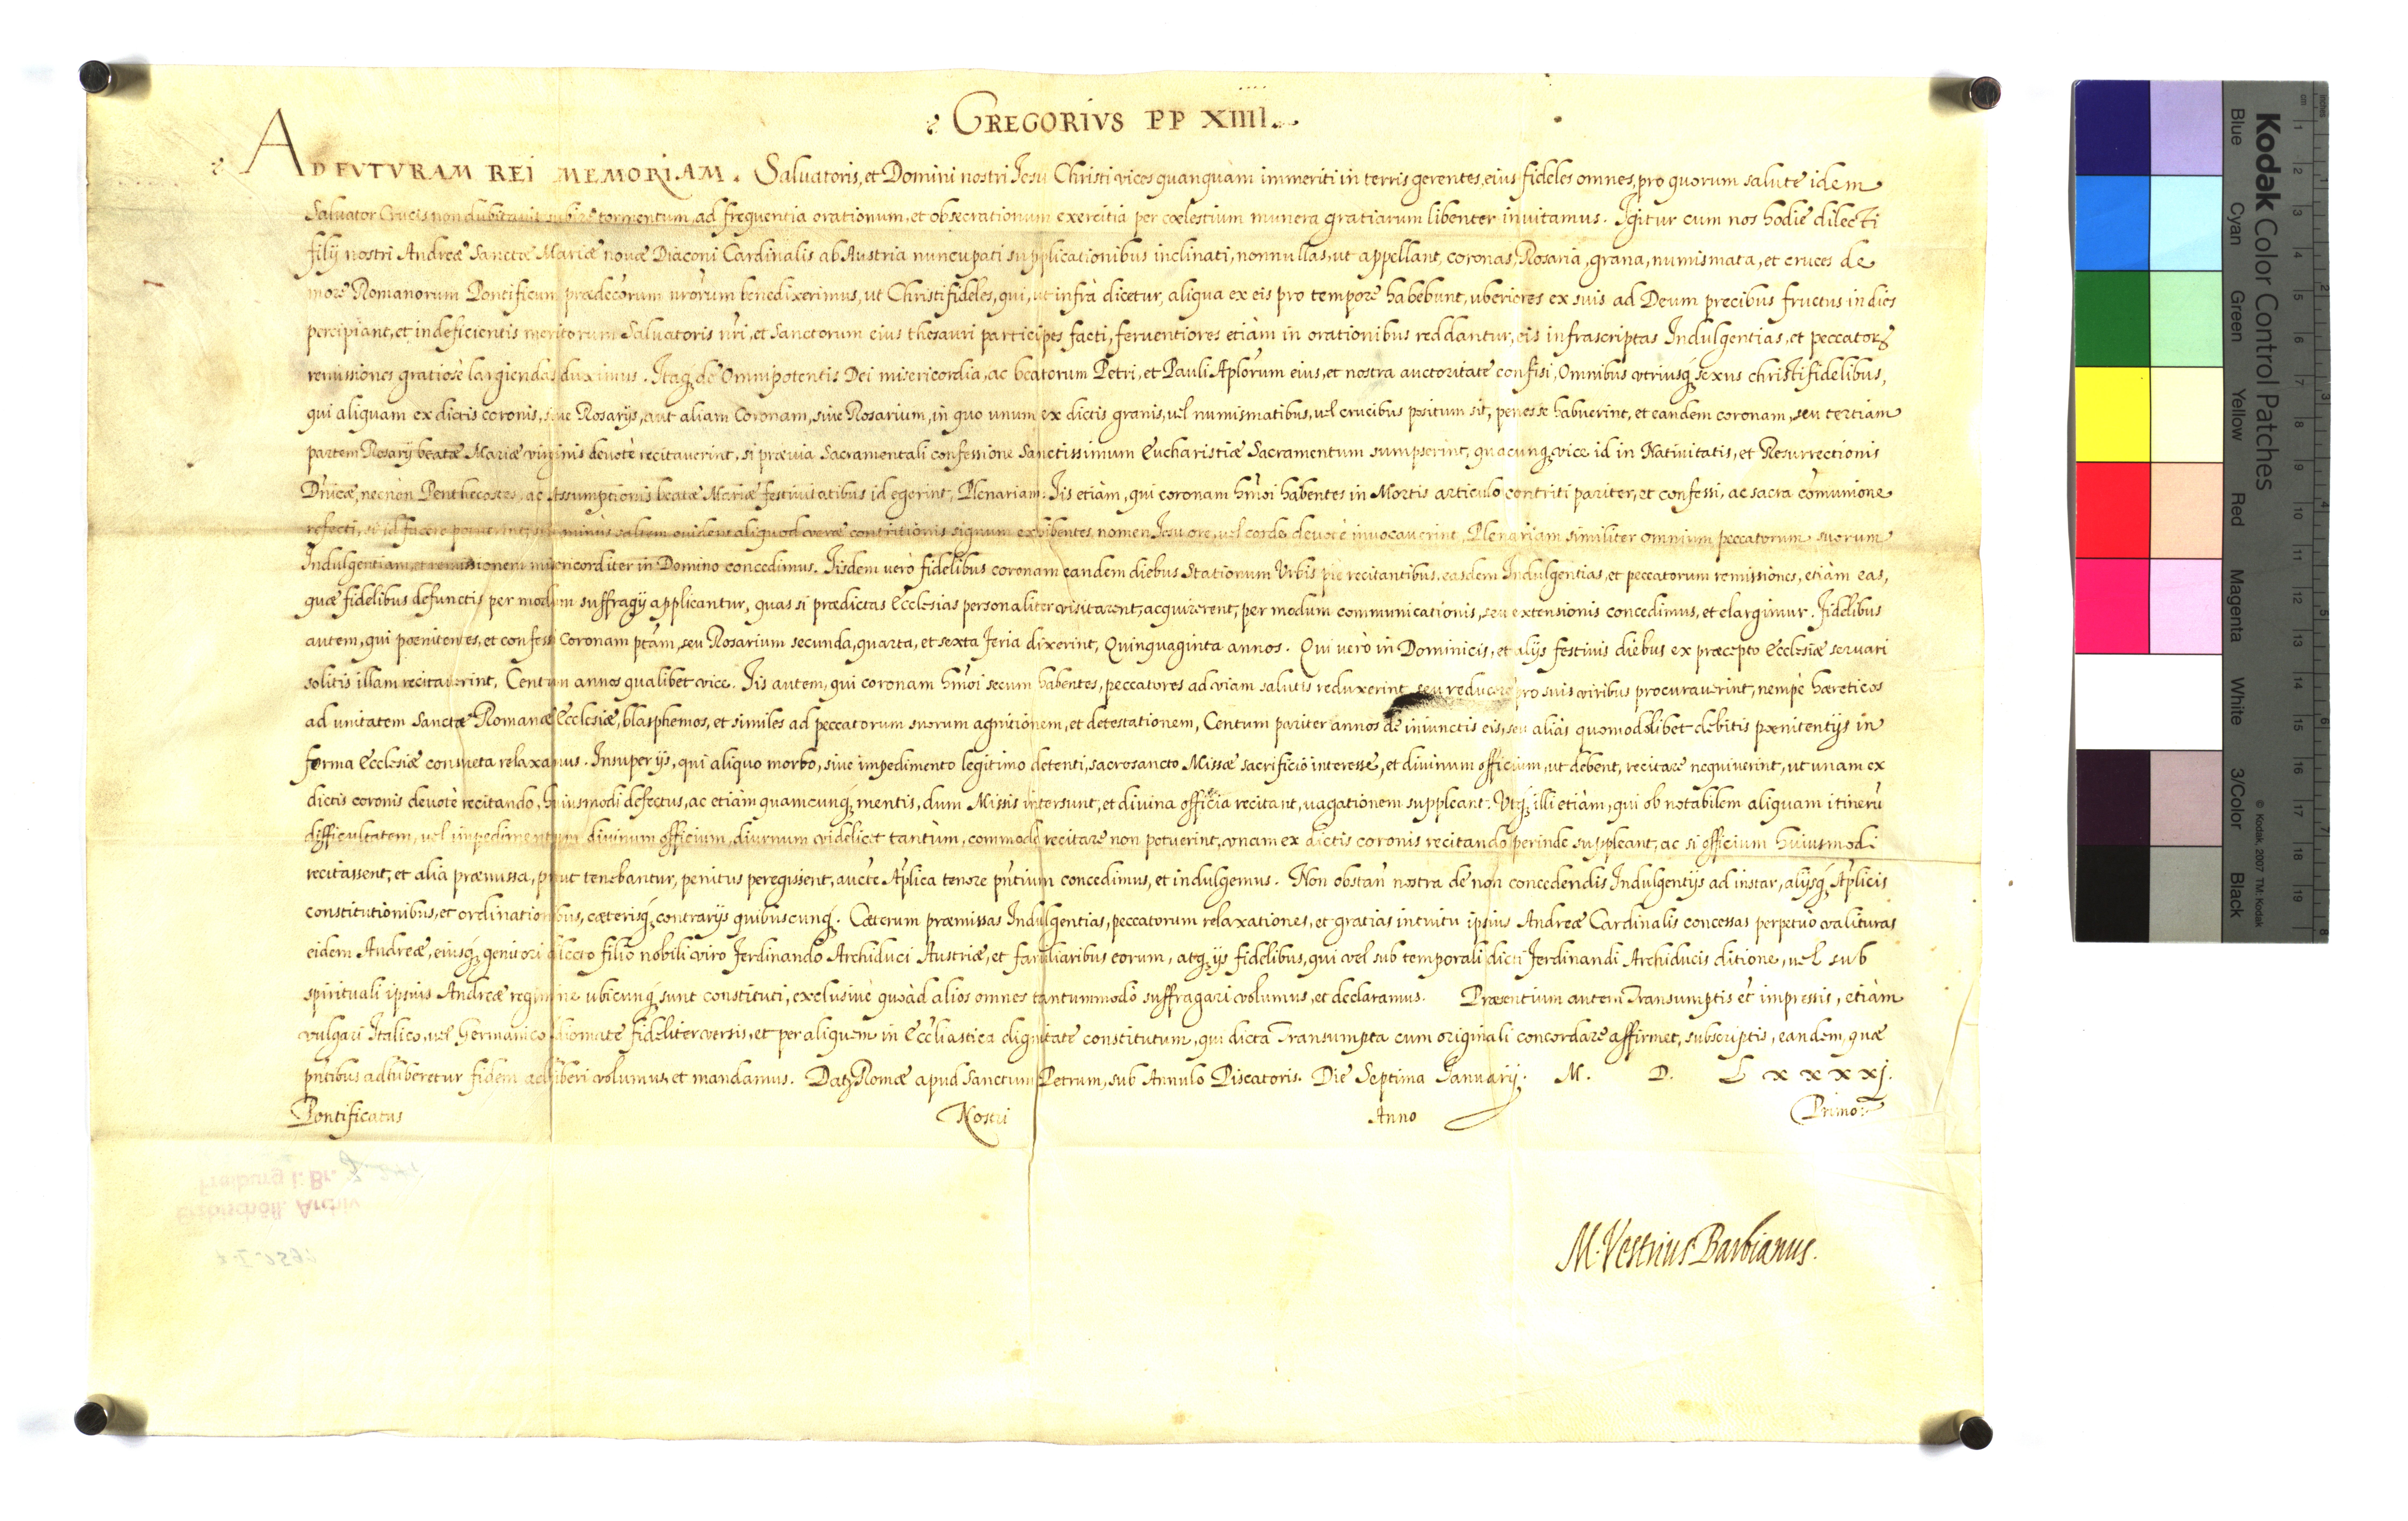 GREGORIVS PP XIIII.
AD FVTVRAM REI MEMORIAM. Saluatoris, et Domini nostri Jesu Christi vices quanquàm immeriti in terris gerentes, eius fideles omnes, pro quorum salute idem
Saluator Crucis non dubitauit subire tormentum, ad frequentia orationum, et obsecrationum exercitia per cœlestium munera gratiarum libenter inuitamus. Igitur cum nos hodie dilecti
filij nostri Andreæ Sanctæ Mariæ nouæ Diaconi Cardinalis ab Austria nuncupati supplicationibus inclinati, nonnullas, ut appellant, coronas, Rosaria, grana, numismata, et cruces de
more Romanorum Pontificum prædecōrum nrōrum benedixerimus, ut Christifideles, qui, ut infrà dicetur, aliqua ex eis pro tempore habebunt, uberiores ex suis ad Deum precibus fructus in dies
percipiant, et indeficientis meritorum Saluatoris nr̄i, et Sanctorum eius thesauri participes facti, feruentiores etiàm in orationibus reddantur, eis infrascriptas Indulgentias, et peccatorꝝ
remissiones gratiosè largiendas duximus. Itaqꝫ de Omnipotentis Dei misericordia, ac beatorum Petri, et Pauli Aplōrum eius, et nostra auctoritate confisi, Omnibus vtriusqꝫ sexus christifidelibus,
qui aliquam ex dictis coronis, siue Rosarijs, aut aliam Coronam, siue Rosarium, in quo unum ex dictis granis, uel numismatibus, uel crucibus positum sit, penes se habuerint, et eandem coronam, seu tertiam
partem Rosarij beatæ Mariæ virginis deuotè recitauerint, si præuia Sacramentali confessione Sanctissimum Eucharistiæ Sacramentum sumpserint, quacunqꝫ vice id in Natiuitatis, et Resurrectionis
Dn̄icæ, necnòn Penthecostes, ac Assumptionis beatæ Mariæ festiuitatibus id egerint, Plenariam. Iis etiàm, qui coronam hmōi habentes in Mortis articulo contriti pariter, et confessi, ac sacra cōmunione
refecti, si id facere potuerint, sin minùs saltem euidens aliquod veræ contritionis signum exhibentes, nomen Jesu ore, uel corde deuotè inuocauerint, Plenariam similiter omnium peccatorum suorum
Indulgentiam, et remissionem misericorditer in Domino concedimus. Iisdem verò fidelibus coronam eandem diebus Stationum Vrbis piè recitantibus, easdem Indulgentias, et peccatorum remissiones, etiàm eas,
quæ fidelibus defunctis per modum suffragij applicantur, quas si prædictas Ecclesias personaliter visitarent, acquirerent, per modum communicationis, seu extensionis concedimus, et elargimur. Fidelibus
autem, qui pœnitentes, et confessi Coronam ptām, seu Rosarium secunda, quarta, et sexta feria dixerint, Quinquaginta annos. Qui verò in Dominicis, et alijs festiuis diebus ex præcepto Ecclesiæ seruari
solitis illam recitauerint, Centum annos qualibet vice. Iis autem, qui coronam hmōi secum habentes, peccatores ad viam salutis reduxerint, seu reducere pro suis viribus procurauerint, nempè hæreticos
ad unitatem Sanctæ Romanæ Ecclesiæ, blasphemos, et similes ad peccatorum suorum agnitionem, et detestationem, Centum pariter annos de iniunctis eis, seu aliàs quomodolibet debitis pœnitentijs in
forma Ecclesiæ consueta relaxamus. Insuper ijs, qui aliquo morbo, siue impedimento legitimo detenti, sacrosancto Missæ sacrificio interesse, et diuinum officium, ut debent, recitare nequiuerint, ut unam ex
dictis coronis deuotè recitando, huiusmodi defectus, ac etiàm quamcunqꝫ mentis, dum Missis intersunt, et diuina officia recitant, uagationem suppleant. Vtqꝫ illi etiàm, qui ob notabilem aliquam itinerū
difficultatem, uel impedimentum diuinum officium, diurnum videlicet tantùm, commodè recitare non potuerint, vnam ex dictis coronis recitando perinde suppleant, ac si officium huiusmodi
recitassent, et alia præmissa, prout tenebantur, penitus peregissent, aucte Aplica tenore pn̄tium concedimus, et indulgemus. Non obstan̄ nostra de non concedendis Indulgentijs ad instar, alijsqꝫ Aplicis
constitutionibus, et ordinationibus, cæterisqꝫ contrarijs quibuscunqꝫ. Cæterum præmissas Indulgentias, peccatorum relaxationes, et gratias intuitu ipsius Andreæ Cardinalis concessas perpetuò valituras
eidem Andreæ, eiusqꝫ genitori dilecto filio nobili viro Ferdinando Archiduci Austriæ, et familiaribus eorum, atqꝫ ijs fidelibus, qui vel sub temporali dicti Ferdinandi Archiducis ditione, uel sub
spirituali ipsius Andreæ regimine ubicunqꝫ sunt constituti, exclusiuè quoàd alios omnes tantummodo suffragari volumus, et declaramus. Præsentium autem Transumptis et impressis, etiàm
vulgari Italico, uel Germanico idiomate fideliter versis, et per aliquem in Eccliastica dignitate constitutum, qui dicta Transumpta cum originali concordare affirmet, subscriptis, eandem, quæ
pn̄tibus adhiberetur fidem adhiberi volumus, et mandamus. Datꝫ Romæ apud Sanctum Petrum, sub Annulo Piscatoris. Die Septima Januarij. M. D. Lxxxxj.
Pontificatus Nostri Anno Primo.
M. Vestrius Barbianus.
Erzbischöfl. Archiv
Freiburg i. Br.
Kodak Color Control Patches
Blue Cyan Green Yellow Red Magenta White 3/Color Black
© Kodak, 2007 TM: Kodak
cm 1 2 3 4 5 6 7 8 9 10 11 12 13 14 15 16 17 18 19
inches 1 2 3 4 5 6 7 8